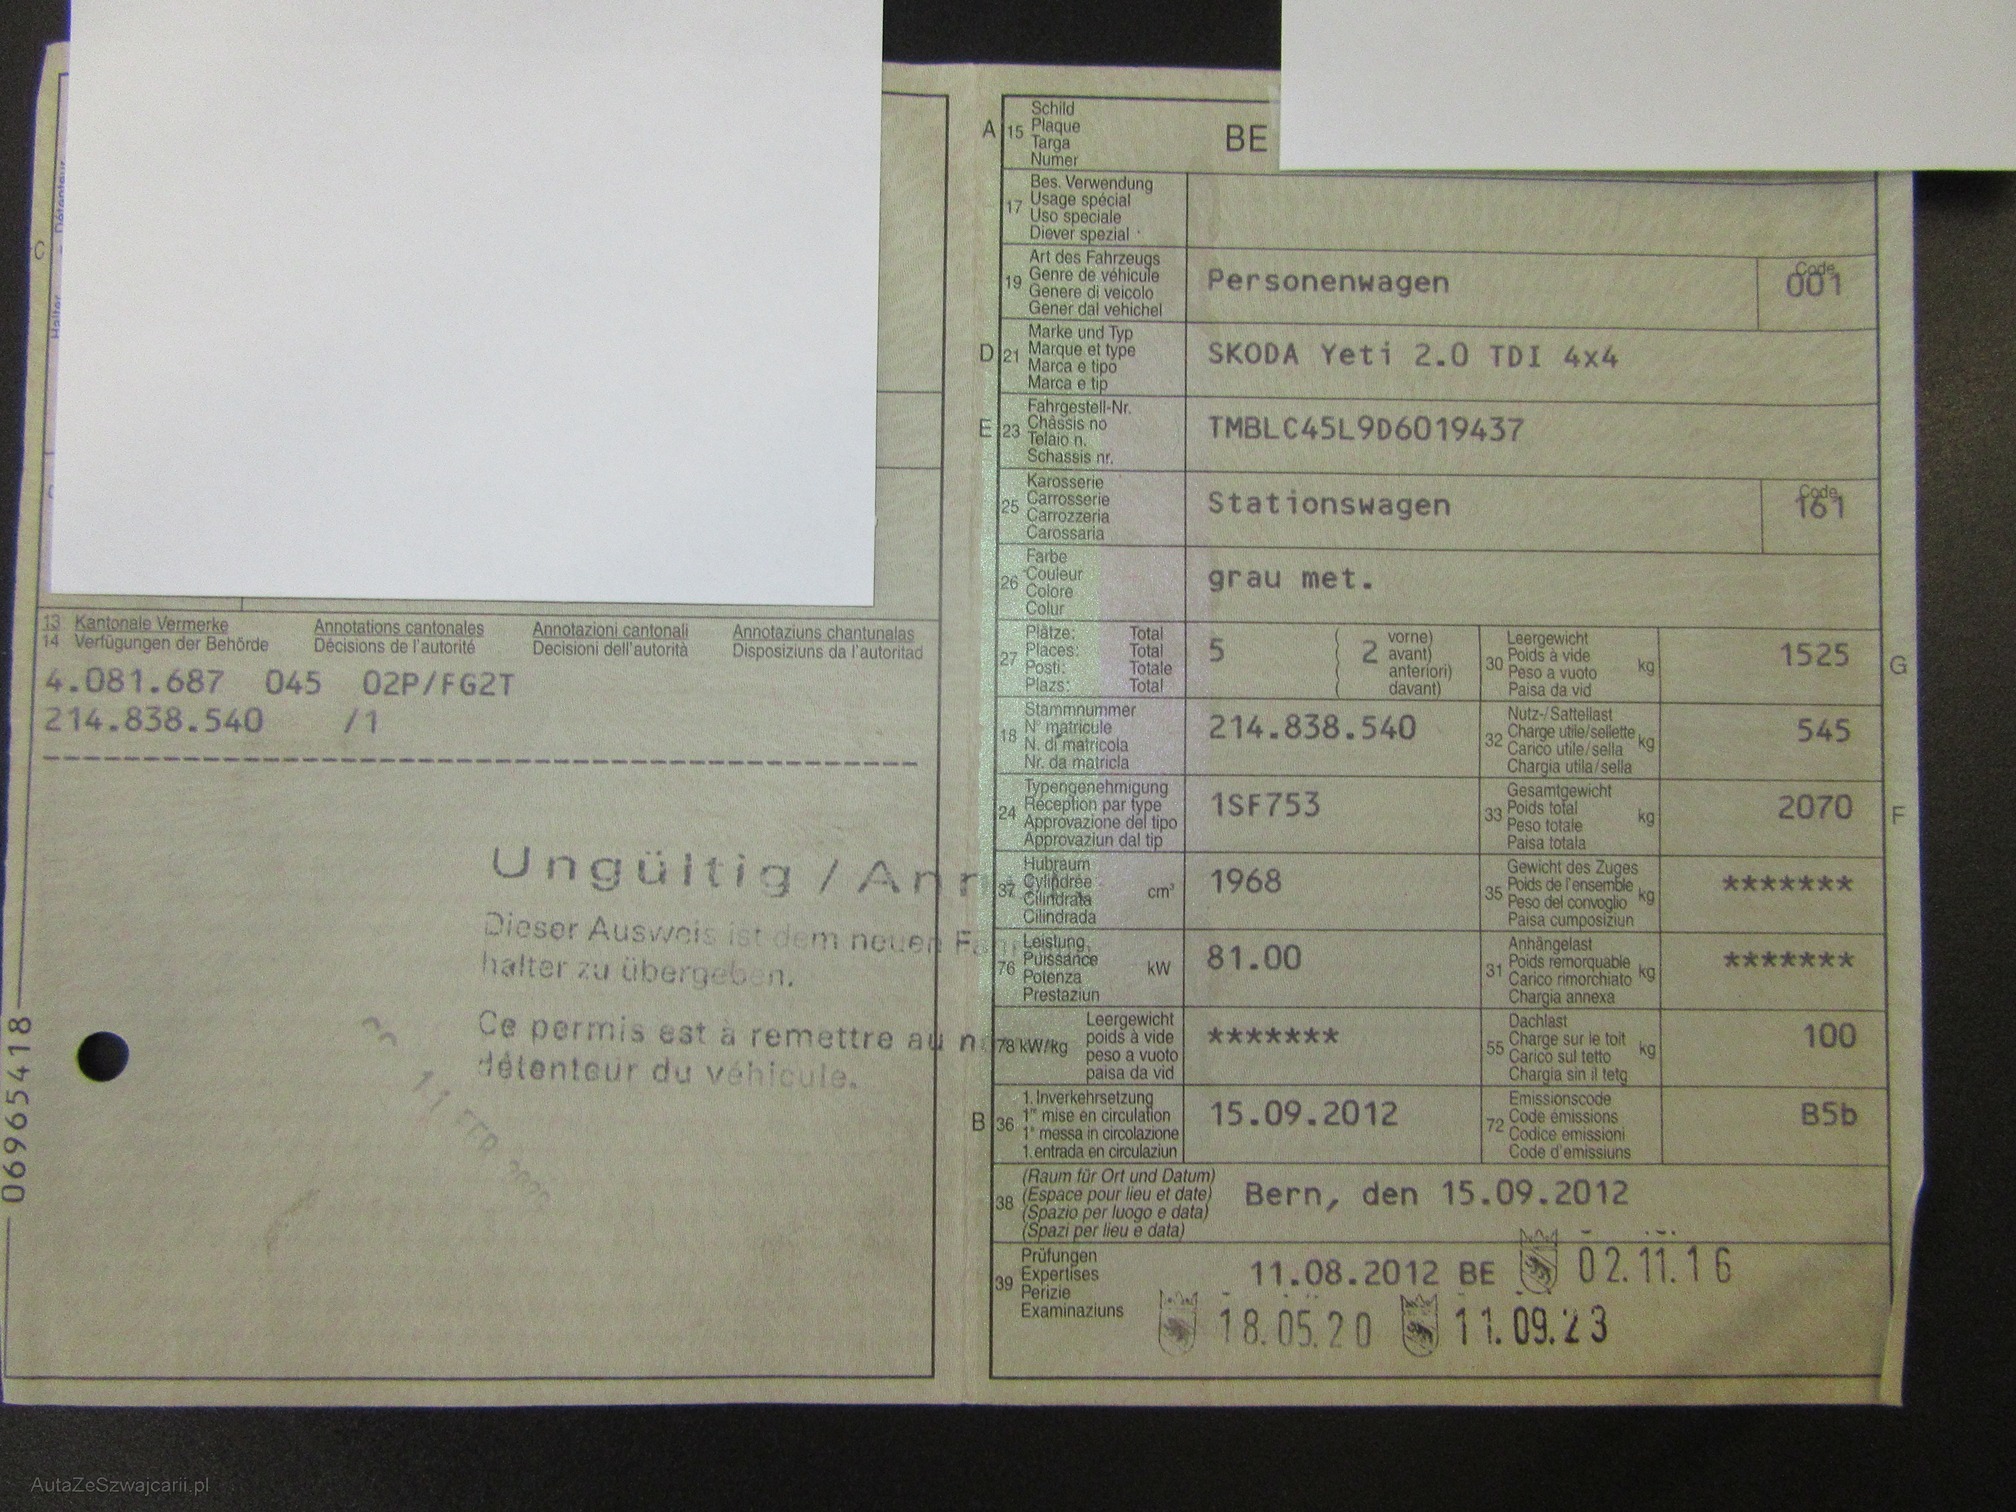 C
Halter
Détenteur
13 Kantonale Vermerke Annotations cantonales Annotazioni cantonali Annotaziuns chantunalas
14 Verfügungen der Behörde Décisions de l'autorité Decisioni dell'autorità Disposiziuns da l'autoritad
4.081.687 045 02P/FG2T
214.838.540 /1
Ungültig / Ann
Dieser Ausweis ist dem neuen Fahr
halter zu übergeben.
Ce permis est à remettre au n
détenteur du véhicule.
069654418
A 15 Schild
Plaque
Targa
Numer
BE
17 Bes. Verwendung
Usage spécial
Uso speciale
Diever spezial
19 Art des Fahrzeugs
Genre de véhicule
Genere di veicolo
Gener dal vehichel
Personenwagen
Code
001
D 21 Marke und Typ
Marque et type
Marca e tipo
Marca e tip
SKODA Yeti 2.0 TDI 4x4
E 23 Fahrgestell-Nr.
Châssis no
Telaio n.
Schassis nr.
TMBLC45L9D6019437
25 Karosserie
Carrosserie
Carrozzeria
Carossaria
Stationswagen
Code
161
26 Farbe
Couleur
Colore
Colur
grau met.
27 Plätze: Total
Places: Total
Posti: Totale
Plazs: Total
5
( 2 vorne)
( avant)
( anteriori)
( davant)
30 Leergewicht
Poids à vide
Peso a vuoto
Paisa da vid
kg
1525
G
18 Stammnummer
N° matricule
N. di matricola
Nr. da matricla
214.838.540
32 Nutz-/Sattellast
Charge utile/sellette
Carico utile/sella
Chargia utila/sella
kg
545
24 Typengenehmigung
Réception par type
Approvazione del tipo
Approvaziun dal tip
1SF753
33 Gesamtgewicht
Poids total
Peso totale
Paisa totala
kg
2070
F
37 Hubraum
Cylindrée
Cilindrata
Cilindrada
cm³
1968
35 Gewicht des Zuges
Poids de l'ensemble
Peso del convoglio
Paisa cumposiziun
kg
*******
76 Leistung
Puissance
Potenza
Prestaziun
kW
81.00
31 Anhängelast
Poids remorquable
Carico rimorchiato
Chargia annexa
kg
*******
78 kW/kg
Leergewicht
poids à vide
peso a vuoto
paisa da vid
*******
55 Dachlast
Charge sur le toit
Carico sul tetto
Chargia sin il tetg
kg
100
B 36 1. Inverkehrsetzung
1re mise en circulation
1a messa in circolazione
1. entrada en circulaziun
15.09.2012
72 Emissionscode
Code émissions
Codice emissioni
Code d'emissiuns
B5b
38 (Raum für Ort und Datum)
(Espace pour lieu et date)
(Spazio per luogo e data)
(Spazi per lieu e data)
Bern, den 15.09.2012
39 Prüfungen
Expertises
Perizie
Examinaziuns
11.08.2012 BE 02.11.16
18.05.20 11.09.23
AutaZeSzwajcarii.pl